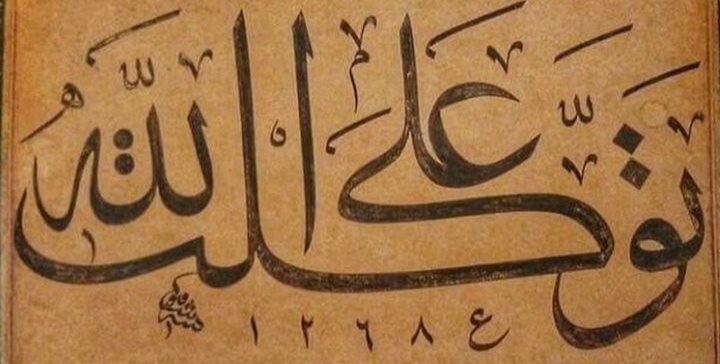 توكلت على الله
ع ١٢٦٨